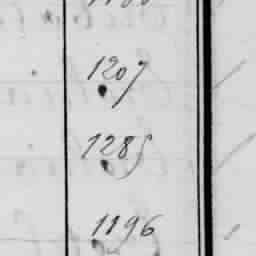 1207
1285
1196